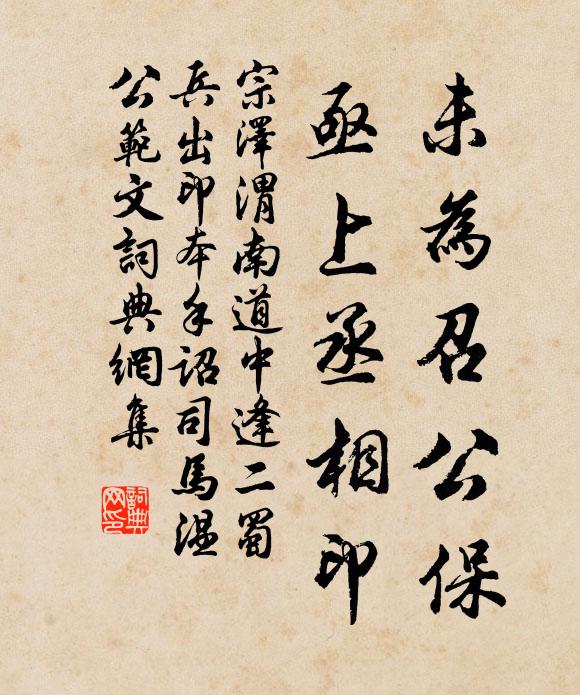 未為召公保
亟上丞相印
宗澤渭南道中逢二蜀
兵出印本手詔司馬溫
公範文詞典網集
詞典网印